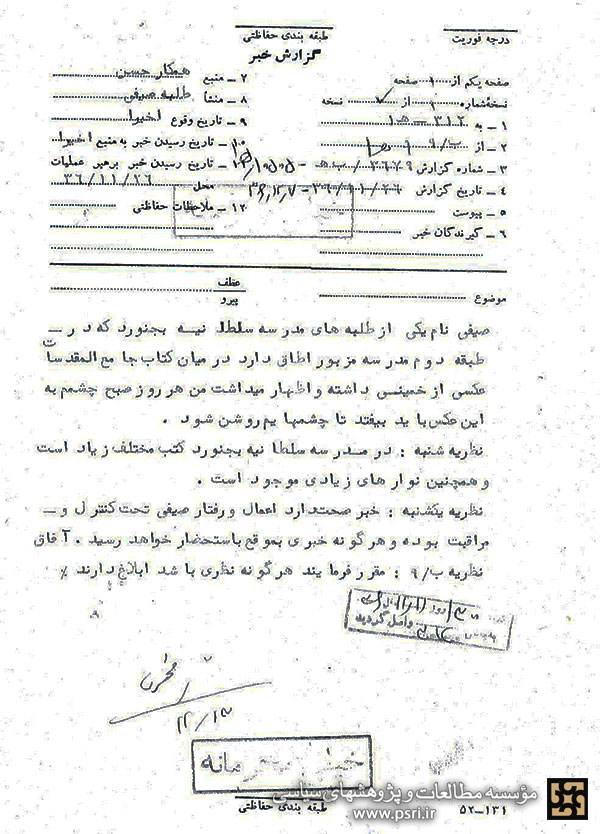 درجه فوریت
طبقه بندی حفاظتی
گزارش خبر
صفحه یکم از ۱ صفحه
نسخه شماره ۱ از ۷ نسخه
۱ – به ۳۱۲ – ه‍ ۱
۲ – از ۹/ب
۳ – شماره گزارش
۴ – تاریخ گزارش ۳۶/۱۱/۲۶
۵ – پیوست
۶ – گیرندگان خبر
۷ – منبع همکار حسن
۸ – منشأ طلبه صیفی
۹ – تاریخ وقوع اخیرا
۱۰ – تاریخ رسیدن خبر به منبع اخیرا
۱۱ – تاریخ رسیدن خبر برهبر عملیات
محل ۳۶/۱۱/۲۶
۱۲ – ملاحظات حفاظتی
موضوع
عطف
پیرو
صیفی نام یکی از طلبه های مدرسه سلطانیه بجنورد که در
طبقه دوم مدرسه مزبور اطاق دارد در میان کتاب جامع المقدسات
عکسی از خمینی داشته و اظهار میداشت من هر روز صبح چشمم به
این عکس باید بیفتد تا چشمهایم روشن شود .
نظریه شنبه : در مدرسه سلطانیه بجنورد کتب مختلف زیاد است
و همچنین نوارهای زیادی موجود است .
نظریه یکشنبه : خبر صحت دارد اعمال و رفتار صیفی تحت کنترل و
مراقبت بوده و هرگونه خبری بموقع باستحضار خواهد رسید . آفاق
نظریه ۹/ب : مقرر فرمایند هرگونه نظری باشد ابلاغ دارند ٪
واصل گردید
۱۲/۱۳
خیلی محرمانه
طبقه بندی حفاظتی
۵۲–۱۳۱
مؤسسه مطالعات و پژوهشهای سیاسی
www.psri.ir